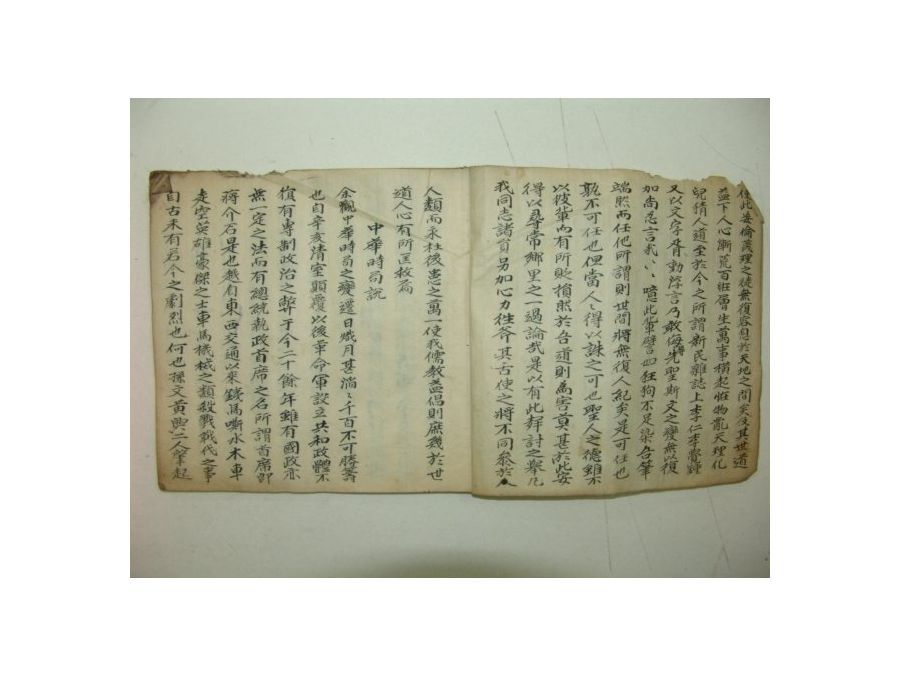 使此妄倫蔑理之徒無復容息於天地之間矣及其世道
益下人心漸荒百班層生萬事橫起怪物亂天理化
兒情人道至於今之所謂新民雜誌上李仁李覺鍾
又以文字胥動浮言乃敢侮先聖斯文之變無以復
加尚忍言哉〻〻噫此輩譬如狂狗不足染吾筆
端然而任他所謂則世間將無復人紀矣是可任也
孰不可任也但當人人得以誅之可也聖人之德雖不
以彼輩而有所貶損然於吾道則為害莫甚於此安
得以尋常鄉里之一過論哉是以有此辭討之舉凡
我同志諸員另加心力往斧其古使之將不同參於人
人類而永杜後患之萬一使我儒教益倡則庶幾於世
道人心有所匡救焉
中華時局說
余觀中華時局之變遷日熾月甚滔〻千百不可勝籌
也自辛亥清室顛覆以後革命軍設立共和政體不
復有專制政治之弊于今二十餘年雖有國政亦
無一定之法而有總統執政首席之名所謂首席即
蔣介石是也越自東西交通以來錢馬嘶水木車
走空英雄豪傑之士車馬機械之類殺戰戰代之事
自古未有若今之劇烈也何也孫文黃興二人肇起